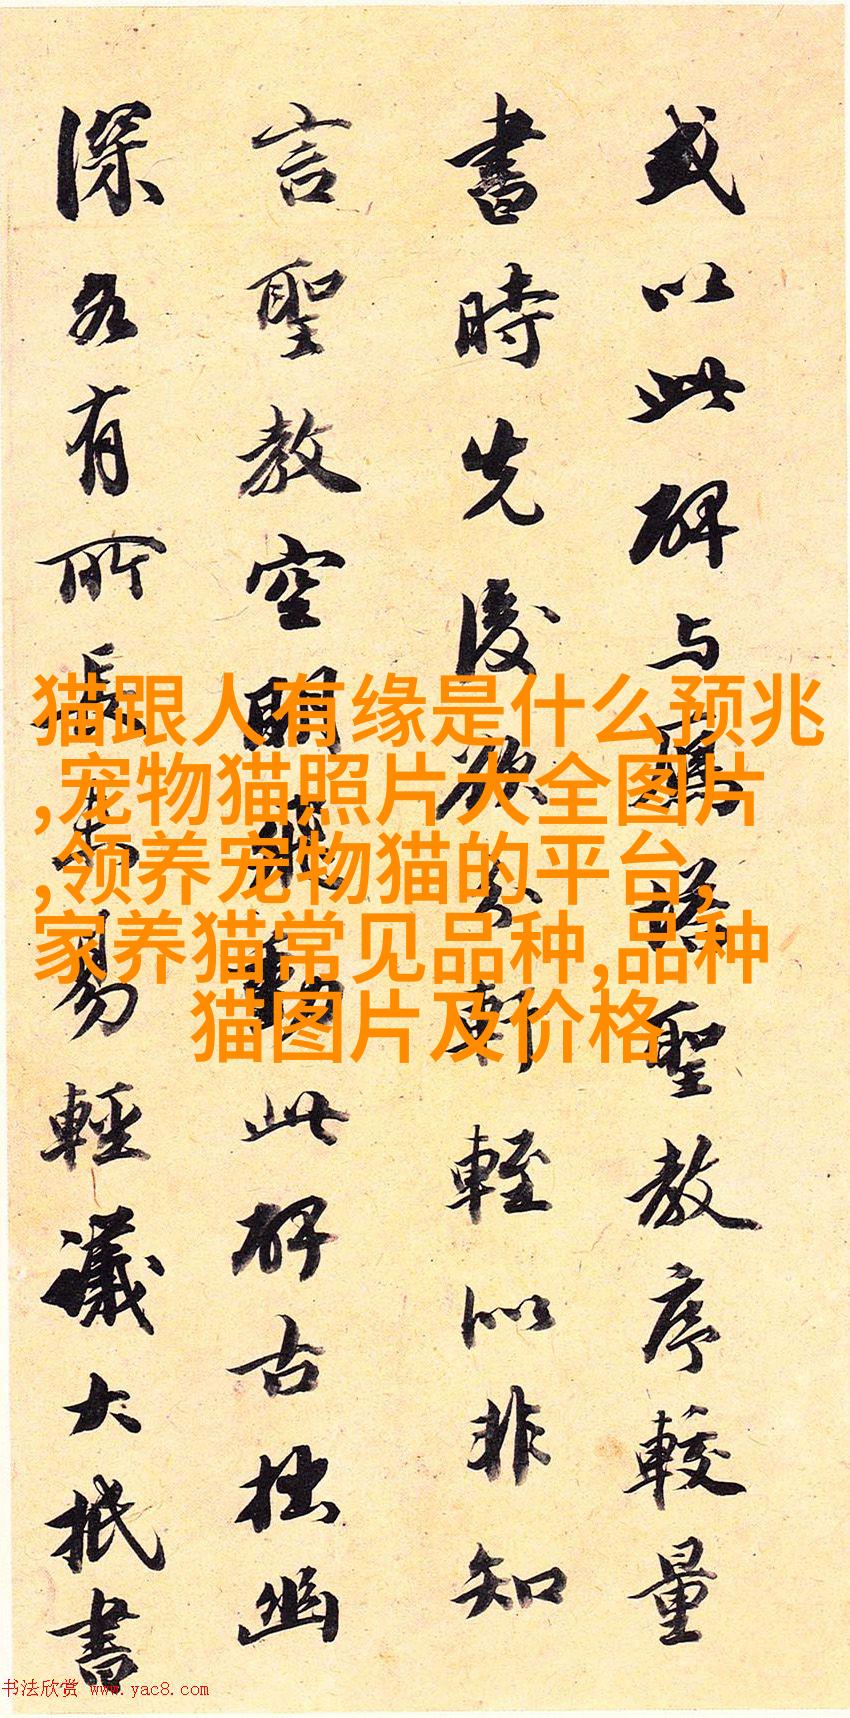 或以此碑与雁塔聖教序較量
書時先後欲分軒輊似非知
言聖教空明飛動此碑古拙幽
深各有所長未易輕議大抵書
猫跟人有缘是什么预兆
,宠物猫照片大全图片
,领养宠物猫的平台,
家养猫常见品种,品种
猫图片及价格
书法欣赏 www.yac8.com